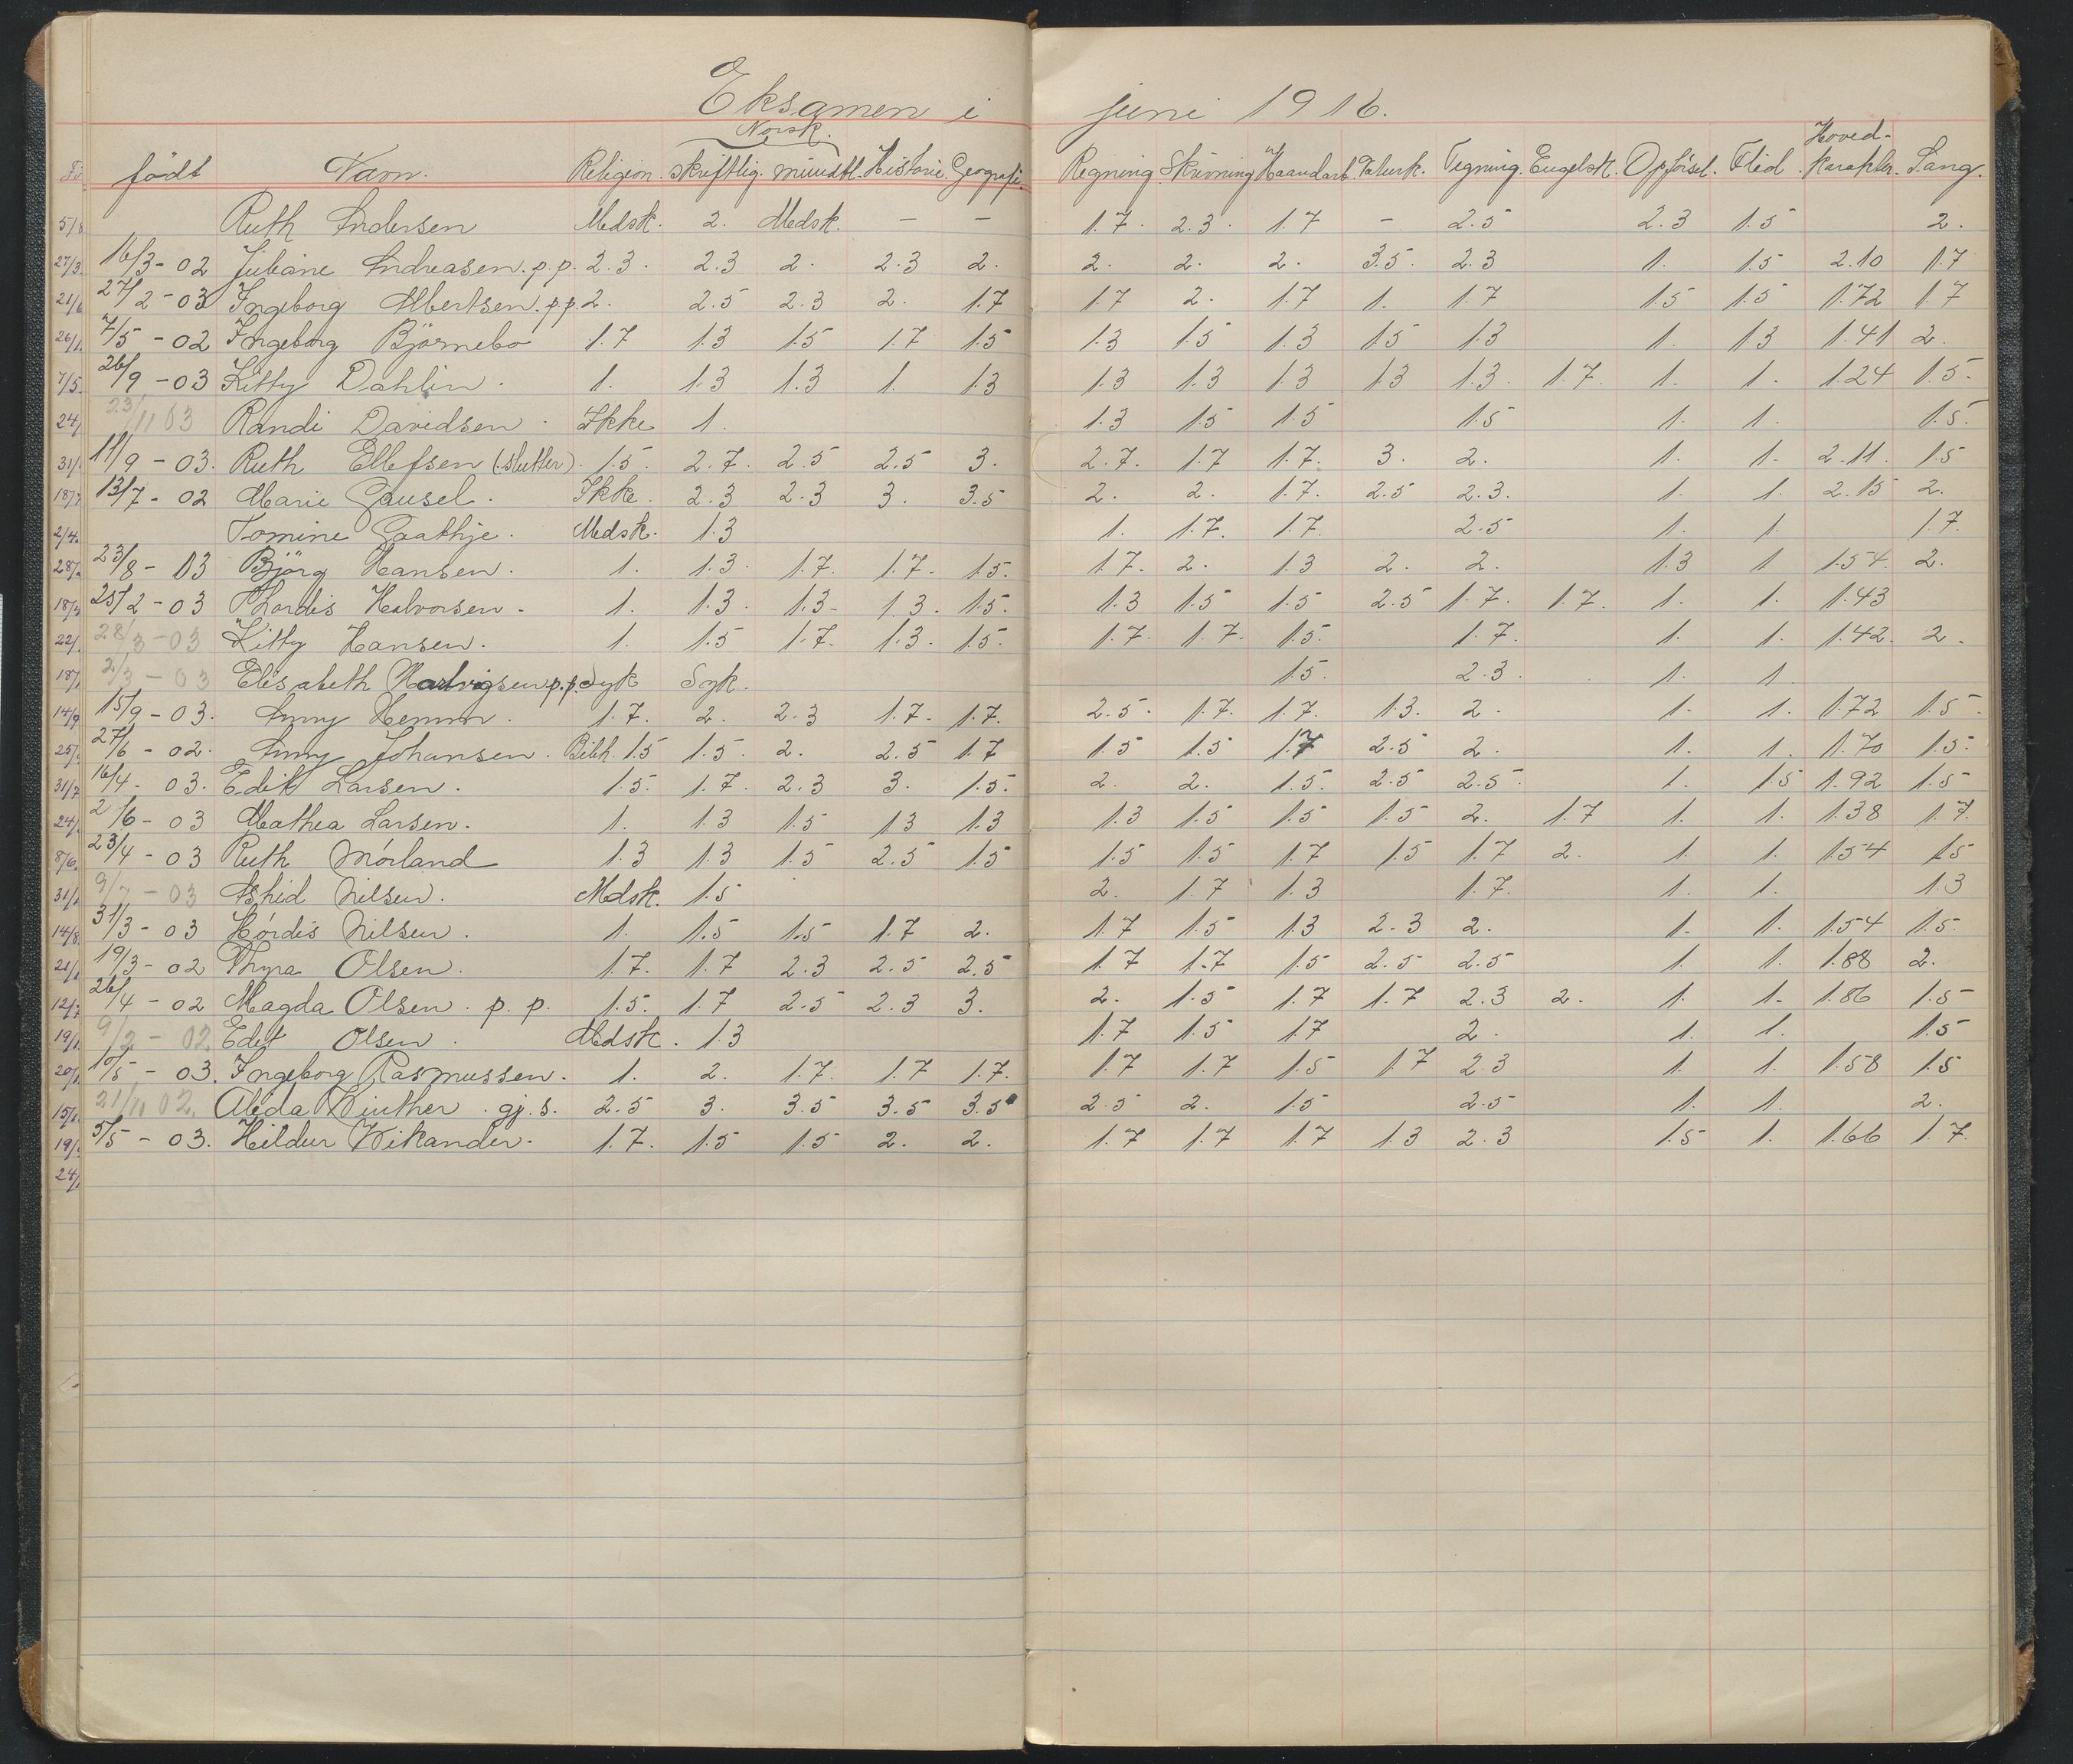 Eksamen i juni 1916.
Norsk. Hoved-
født Navn. Religion. skriftlig. mundtl. Historie. Geografi. Regning. Skrivning Haandarb. Naturk. Tegning. Engelsk. Opførsel. Flid. karakter. Sang.
5/8 Ruth Andersen Medsk. 2. Medsk. – – 1.7. 2.3. 1.7 – 2.5 2.3 1.5 2.
27/3. 16/3 - 02 Juliane Andreasen. p.p. 2.3. 2.3 2. 2.3 2. 2. 2. 2. 3.5. 2.3 1. 1.5 2.10 1.7
21/6 27/2 - 03 Ingeborg Albertsen. p.p. 2. 2.5 2.3 2. 1.7 1.7 2. 1.7 1. 1.7 1.5 1.5 1.72 1.7
26/1. 7/5 - 02 Ingeborg Björnebo 1.7 1.3 1.5 1.7 1.5 1.3 1.5 1.3 1.5 1.3 1. 1.3 1.41 2.
7/5. 26/9 - 03 Kitty Dahlin. 1. 1.3 1.3 1. 1.3 1.3 1.3 1.3 1.3 1.3. 1.7. 1. 1. 1.24 1.5.
24/ 23/11 03 Randi Davidsen. Ikke 1. 1.3 1.5 1.5 1.5 1. 1. 1.5.
31/ 17/9 - 03. Ruth Ellefsen (slutter). 1.5. 2.7. 2.5 2.5 3. 2.7. 1.7 1.7. 3. 2. 1. 1. 2.11. 1.5
18/7 13/7 - 02 Marie Gausel. Ikke. 2.3 2.3 3. 3.5 2. 2. 1.7. 2.5 2.3. 1. 1. 2.15 2.
2/4. Tomine Gaathje. Medsk. 1.3 1. 1.7. 1.7. 2.5 1. 1. 1.7.
28/ 23/8 - 03 Björg Hansen. 1. 1.3. 1.7. 1.7. 1.5. 1.7. 2. 1.3 2. 2. 1.3 1 1.54. 2.
18/ 25/2 - 03 Thordis Halvorsen. 1. 1.3. 1.3. 1.3. 1.5. 1.3 1.5 1.5 2.5 1.7. 1.7. 1. 1. 1.43
22/ 28/3 - 03 Kitty Hansen. 1. 1.5 1.7. 1.3. 1.5. 1.7. 1.7. 1.5. 1.7. 1. 1. 1.42. 2.
18/ 2/3 - 03 Elisabeth Hartvigsen p.p. Syk Syk. 1.5. 2.3. 1. 1.
14/9 15/9 - 03. Anny Hemm. 1.7. 2. 2.3 1.7. 1.7. 2.5. 1.7. 1.7. 1.3. 2. 1. 1. 1.72 1.5.
25/ 27/6 - 02. Anny Johansen. Bibh. 1.5 1.5. 2. 2.5 1.7 1.5 1.5 1.7 2.5 2. 1. 1. 1.70 1.5.
31/7 16/4 - 03. Edit Larsen. 1.5. 1.7. 2.3 3. 1.5. 2. 2. 1.5. 2.5 2.5. 1. 1.5 1.92 1.5
24/ 2/6 - 03 Mathea Larsen. 1. 1.3 1.5 1.3 1.3 1.3 1.5 1.5 1.5 2. 1.7 1. 1. 1.38 1.7.
8/6. 23/4 - 03 Ruth Mörland 1.3 1.3 1.5 2.5 1.5 1.5 1.5 1.7 1.5 1.7 2. 1. 1. 1.54 1.5
31/ 9/7 - 03 Astrid Nilsen. Medsk. 1.5 2. 1.7 1.3 1.7. 1. 1. 1.3
14/8. 31/3 - 03 Hördis Nilsen. 1. 1.5 1.5 1.7 2. 1.7 1.5 1.3 2.3 2. 1. 1. 1.54 1.5.
21/ 19/3 - 02 Thyra Olsen. 1.7. 1.7 2.3 2.5 2.5 1.7 1.7 1.5 2.5 2.5 1. 1. 1.88 2.
12/7 26/4 - 02 Magda Olsen. p. p. 1.5. 1.7 2.5 2.3 3. 2. 1.5 1.7 1.7 2.3 2. 1. 1. 1.86 1.5
19/ 9/2 - 02 Edit Olsen. Medsk. 1.3 1.7 1.5 1.7 2. 1. 1. 1.5
20/ 10/5 - 03. Ingeborg Rasmussen. 1. 2. 1.7. 1.7 1.7. 1.7 1.7 1.5 1.7 2.3 1. 1. 1.58 1.5
15/ 21/11 02. Alida Winther. gj. s. 2.5 3. 3.5 3.5 3.5 2.5 2. 1.5 2.5 1. 1. 2.
19/ 5/5 - 03. Hildur Wikander. 1.7. 1.5 1.5 2. 2. 1.7 1.7 1.7 1.3 2.3 1.5 1. 1.66 1.7.
24/